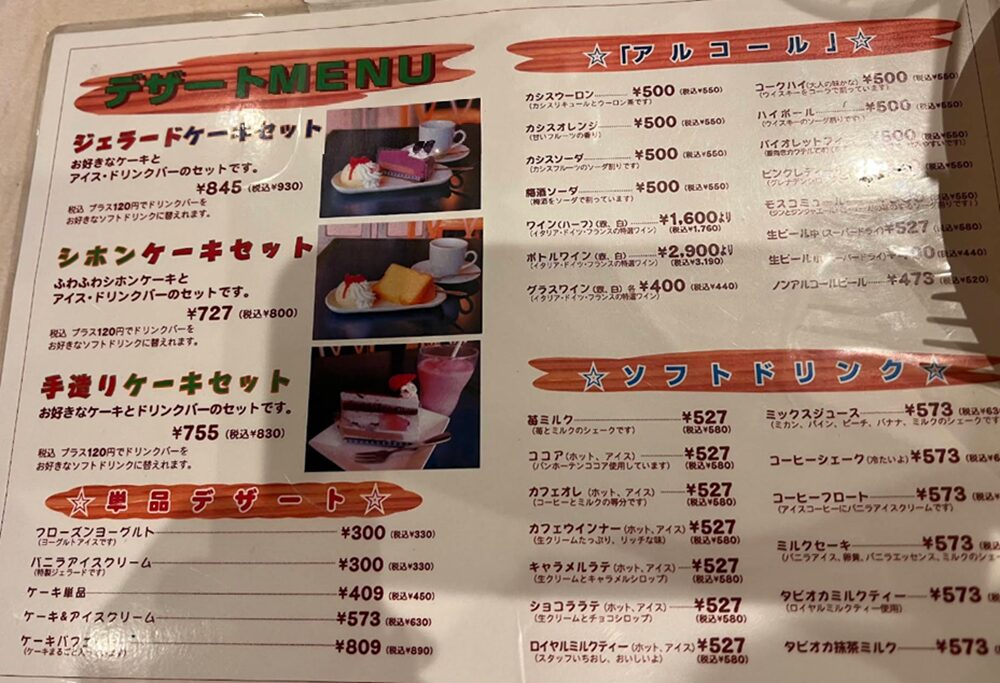 デザートMENU
ジェラードケーキセット
お好きなケーキと
アイス・ドリンクバーのセットです。
¥845 (税込¥930)
税込 プラス120円でドリンクバーを
お好きなソフトドリンクに替えれます。
シホンケーキセット
ふわふわシホンケーキと
アイス・ドリンクバーのセットです。
¥727 (税込¥800)
税込 プラス120円でドリンクバーを
お好きなソフトドリンクに替えれます。
手造りケーキセット
お好きなケーキとドリンクバーのセットです。
¥755 (税込¥830)
税込 プラス120円でドリンクバーを
お好きなソフトドリンクに替えれます。
☆単品デザート☆
フローズンヨーグルト ¥300 (税込¥330)
(ヨーグルトアイスです)
バニラアイスクリーム ¥300 (税込¥330)
(特製ジェラードです)
ケーキ単品 ¥409 (税込¥450)
ケーキ&アイスクリーム ¥573 (税込¥630)
ケーキパフェ ¥809 (税込¥890)
(ケーキまるごと入っています)
☆「アルコール」☆
カシスウーロン ¥500 (税込¥550)
(カシスリキュールとウーロン茶です)
カシスオレンジ ¥500 (税込¥550)
(甘いフルーツの香り)
カシスソーダ ¥500 (税込¥550)
(カシスフルーツのソーダ割りです)
梅酒ソーダ ¥500 (税込¥550)
(梅酒をソーダで割っています)
ワイン(ハーフ)(赤、白) ¥1,600より
(イタリア・ドイツ・フランスの特選ワイン) (税込¥1,760)
ボトルワイン(赤、白) ¥2,900より
(イタリア・ドイツ・フランスの特選ワイン) (税込¥3,190)
グラスワイン(赤、白) 各 ¥400 (税込¥440)
(イタリア・ドイツ・フランスの特選ワイン)
コークハイ(大人の味かな) ¥500 (税込¥550)
(ウイスキーをコーラで割っています)
ハイボール ¥500 (税込¥550)
(ウイスキーのソーダ割りです)
バイオレットフィ ¥500 (税込¥550)
ピンクレディ (税込¥550)
モスコミュール (税込¥550)
生ビール中 (スーパードライ) ¥527 (税込¥580)
生ビール (スーパードライ) (税込¥440)
ノンアルコールビール ¥473 (税込¥520)
☆ソフトドリンク☆
苺ミルク ¥527
(苺とミルクのシェークです) (税込¥580)
ココア (ホット、アイス) ¥527
(バンホーテンココア使用しています) (税込¥580)
カフェオレ (ホット、アイス) ¥527
(コーヒーとミルクの等分です) (税込¥580)
カフェウインナー (ホット、アイス) ¥527
(生クリームたっぷり、リッチな味) (税込¥580)
キャラメルラテ (ホット、アイス) ¥527
(生クリームとキャラメルシロップ) (税込¥580)
ショコララテ (ホット、アイス) ¥527
(生クリームとチョコシロップ) (税込¥580)
ロイヤルミルクティー (ホット、アイス) ¥527
(スタッフいちおし、おいしいよ) (税込¥580)
ミックスジュース ¥573 (税込¥63
(ミカン、パイン、ピーチ、バナナ、ミルクのシェークです
コーヒーシェーク(冷たいよ) ¥573 (税込¥6
コーヒーフロート ¥573 (税込¥
(アイスコーヒーにバニラアイスクリームです)
ミルクセーキ ¥573 (税込
(バニラアイス、卵黄、バニラエッセンス、ミルクのシェー
タピオカミルクティー ¥573 (税
(ロイヤルミルクティー使用)
タピオカ抹茶ミルク ¥573